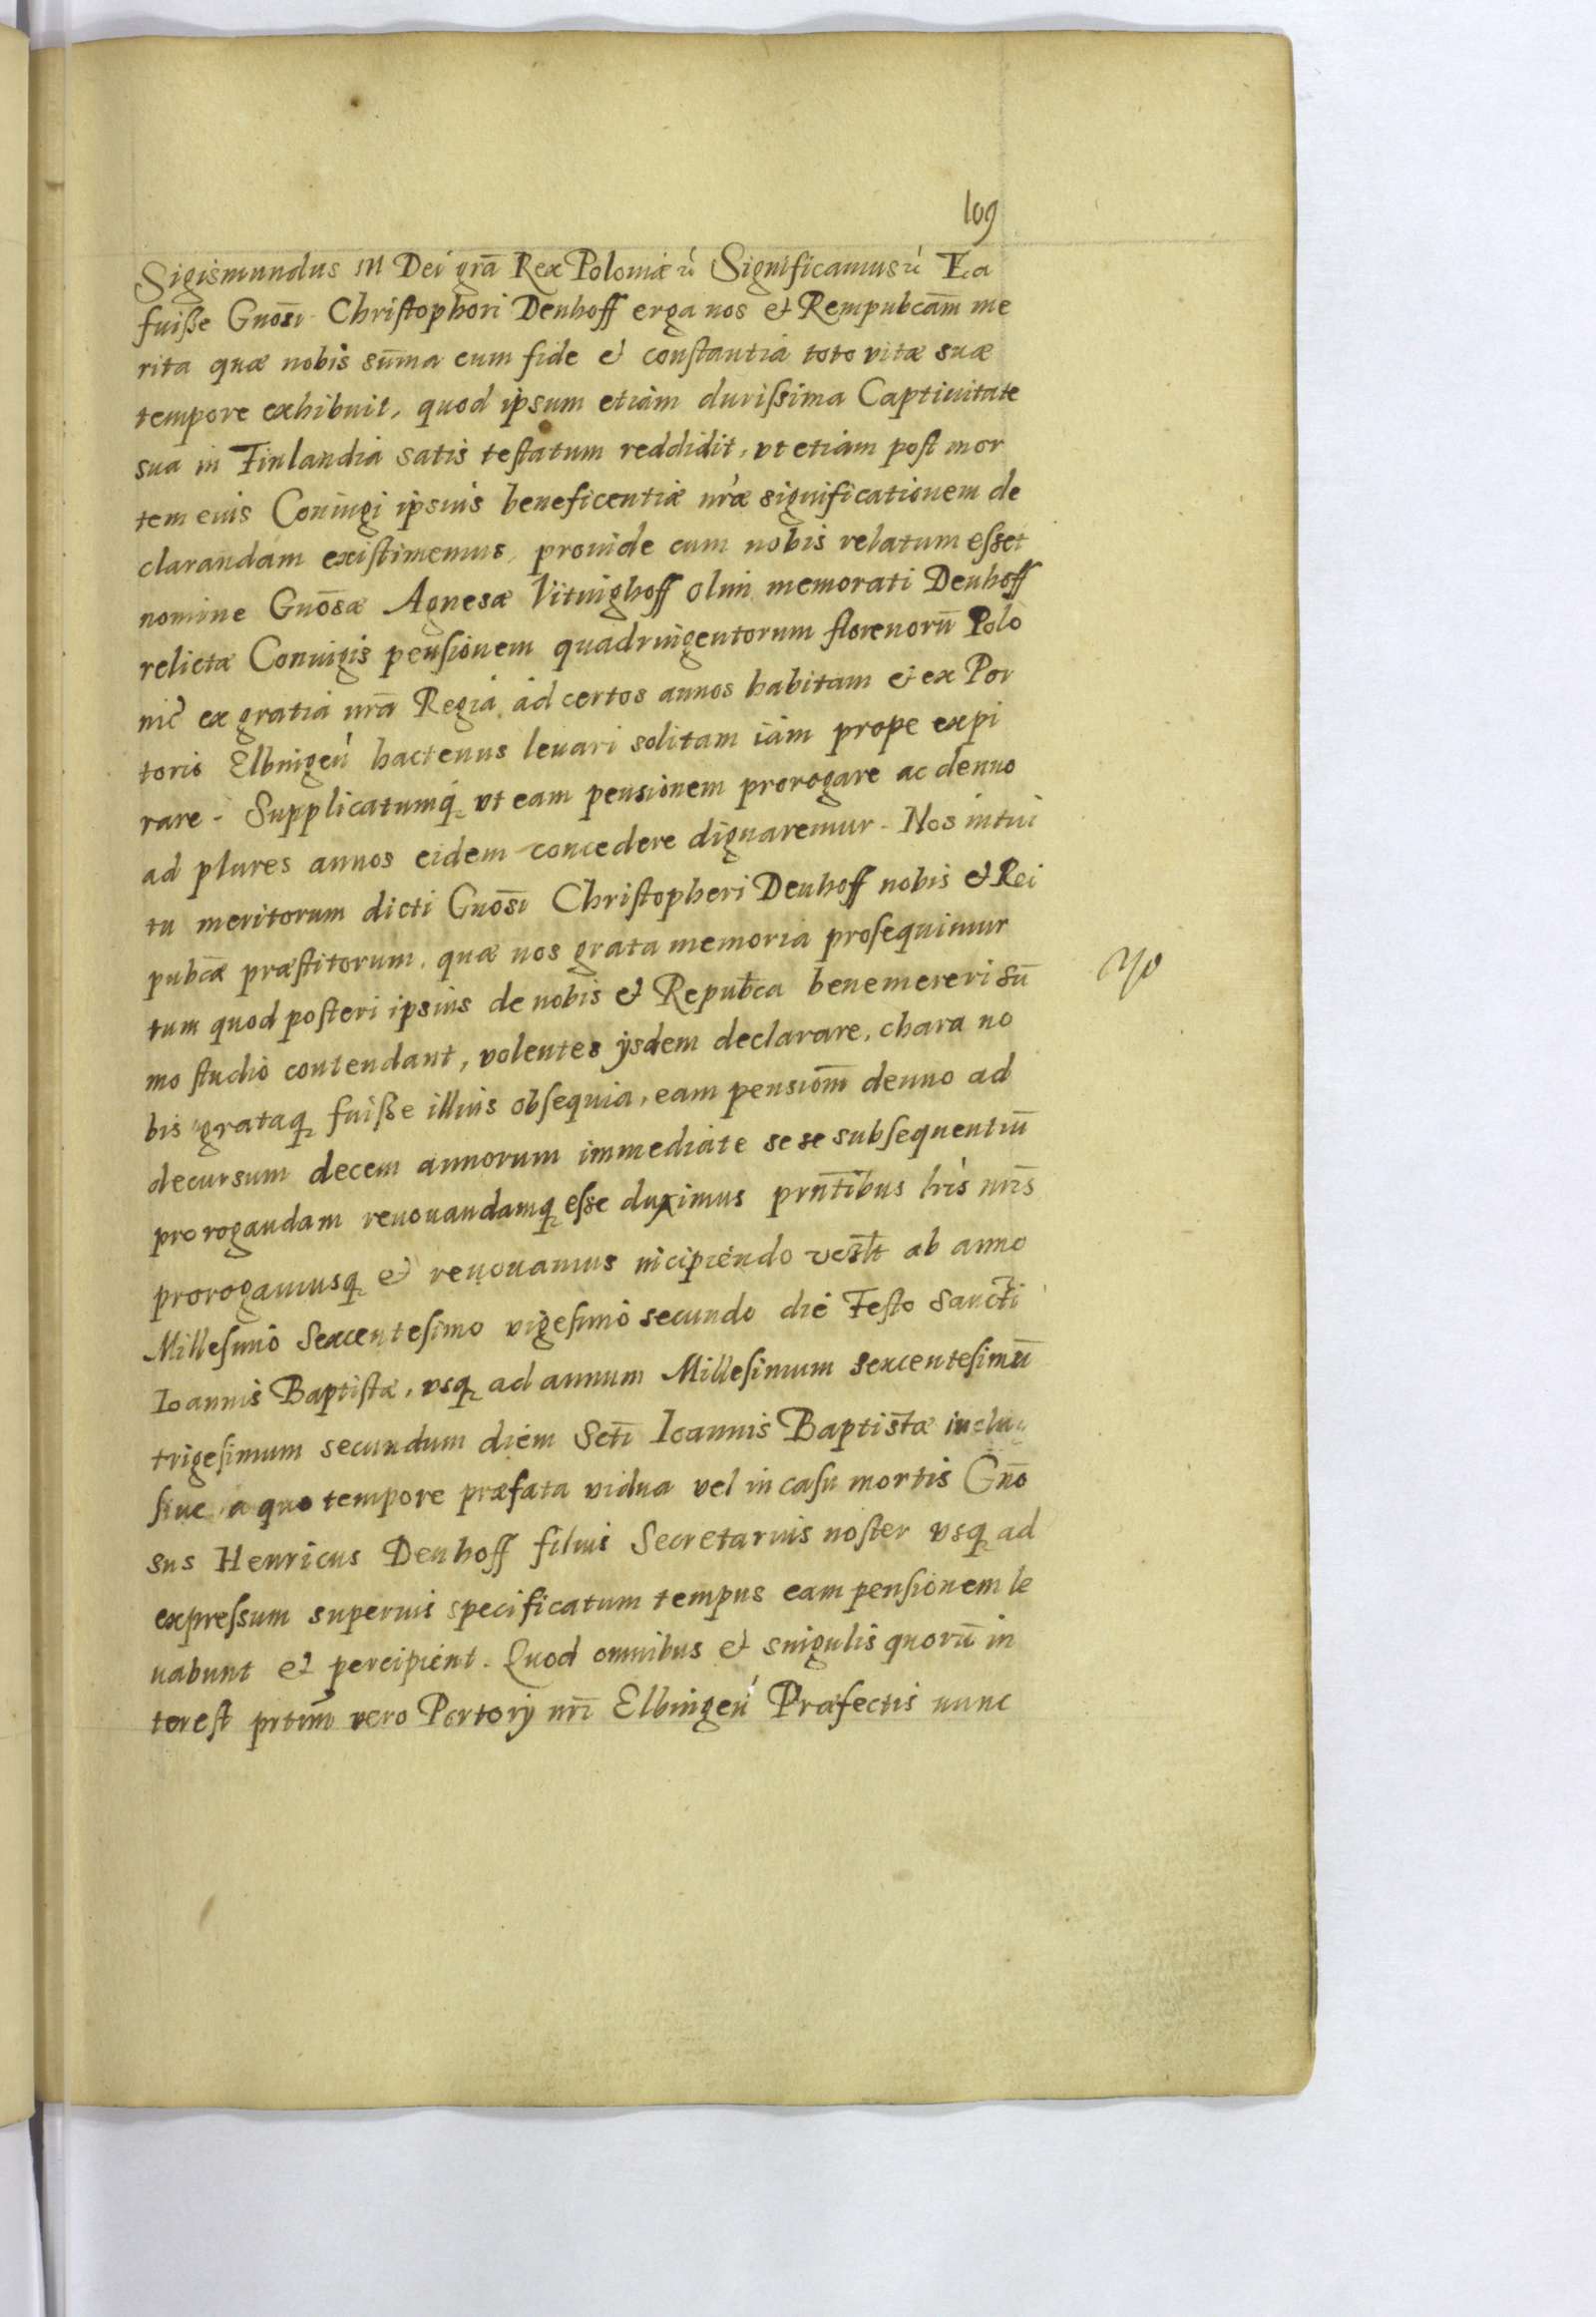 109
Sigismundus III Dei grā Rex Poloniæ ꝛć Significamus ꝛć Ea
fuiße Gnōsi Christophori Denhoff erga nos et Rempubcām me
rita quæ nobis sūma cum fide et constantia toto vitæ suæ
tempore exhibuit, quod ipsum etiam durissima Captiuitate
sua in Finlandia satis testatum reddidit, vt etiam post mor
tem eius Coniugi ipsius beneficentiæ nr̄æ significationem de
clarandam existimemus, prouide cum nobis relatum esset
nomine Gnōsæ Agnesæ Vitinghoff olim memorati Denhoff
relictæ Coniugis pensionem quadringentorum florenorū Polo
nic̄ ex gratia nr̄a Regia ad certos annos habitam et ex Por
torio Elbingeń hactenus leuari solitam iam prope expi
rare. Supplicatumq̨ vt eam pensionem prorogare ac denuo
ad plures annos eidem concedere dignaremur. Nos intui
tu meritorum dicti Gnōsi Christopheri Denhoff nobis et Rei
pubcæ præstitorum, quæ nos grata memoria prosequimur
tum quod posteri ipsius de nobis et Repubca benemereri sū
mo studio contendant, volentes ijsdem declarare, chara no
bis grataq̨ fuiße illius obsequia, eam pensiōm denuo ad
decursum decem annorum immediate sese subsequentiū
prorogandam renouandamq̨ esse duximus prn̄tibus lr̄is nr̄is
prorogamusq̨ et renouamus incipiendo ab anno
Millesimo Sexcentesimo vigesimo secundo die Festo Sancti
Ioannis Baptistæ, vsq̨ ad annum Millesimum sexcentesimū
trigesimum secundum diem Scti Ioannis Baptistæ inclu
siue a quo tempore præfata vidua vel in casu mortis Gnō
sus Henricus Denhoff filius Secretarius noster vsq̨ ad
expressum superius specificatum tempus eam pensionem le
uabunt et percipient. Quod omnibus et singulis quorū in
terest prtim̄ vero Portorij nr̄i Elbingeń Præfectis nunc